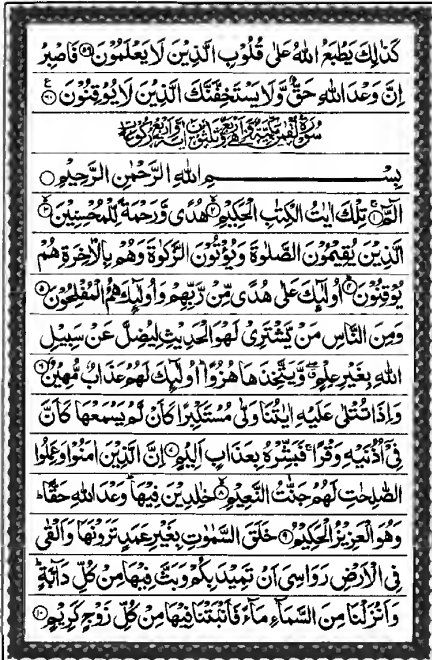 كَذٰلِكَ يَطْبَعُ اللهُ عَلٰى قُلُوْبِ الَّذِيْنَ لَا يَعْلَمُوْنَ ﴿۵۹﴾ فَاصْبِرْ
اِنَّ وَعْدَ اللهِ حَقٌّ وَّلَا يَسْتَخِفَّنَّكَ الَّذِيْنَ لَا يُوْقِنُوْنَ ﴿۶۰﴾
بِسْمِ اللهِ الرَّحْمٰنِ الرَّحِيْمِ
الٓمّٓ ﴿۱﴾ تِلْكَ اٰيٰتُ الْكِتٰبِ الْحَكِيْمِ ﴿۲﴾ هُدًى وَّرَحْمَةً لِّلْمُحْسِنِيْنَ ﴿۳﴾
الَّذِيْنَ يُقِيْمُوْنَ الصَّلٰوةَ وَيُؤْتُوْنَ الزَّكٰوةَ وَهُمْ بِالْاٰخِرَةِ هُمْ
يُوْقِنُوْنَ ﴿۴﴾ اُولٰٓئِكَ عَلٰى هُدًى مِّنْ رَّبِّهِمْ وَاُولٰٓئِكَ هُمُ الْمُفْلِحُوْنَ ﴿۵﴾
وَمِنَ النَّاسِ مَنْ يَّشْتَرِيْ لَهْوَ الْحَدِيْثِ لِيُضِلَّ عَنْ سَبِيْلِ
اللهِ بِغَيْرِ عِلْمٍ وَّيَتَّخِذَهَا هُزُوًا اُولٰٓئِكَ لَهُمْ عَذَابٌ مُّهِيْنٌ ﴿۶﴾
وَاِذَا تُتْلٰى عَلَيْهِ اٰيٰتُنَا وَلّٰى مُسْتَكْبِرًا كَاَنْ لَّمْ يَسْمَعْهَا كَاَنَّ
فِيْٓ اُذُنَيْهِ وَقْرًا فَبَشِّرْهُ بِعَذَابٍ اَلِيْمٍ ﴿۷﴾ اِنَّ الَّذِيْنَ اٰمَنُوْا وَعَمِلُوا
الصّٰلِحٰتِ لَهُمْ جَنّٰتُ النَّعِيْمِ ﴿۸﴾ خٰلِدِيْنَ فِيْهَا وَعْدَ اللهِ حَقًّا
وَهُوَ الْعَزِيْزُ الْحَكِيْمُ ﴿۹﴾ خَلَقَ السَّمٰوٰتِ بِغَيْرِ عَمَدٍ تَرَوْنَهَا وَاَلْقٰى
فِي الْاَرْضِ رَوَاسِيَ اَنْ تَمِيْدَ بِكُمْ وَبَثَّ فِيْهَا مِنْ كُلِّ دَآبَّةٍ
وَاَنْزَلْنَا مِنَ السَّمَآءِ مَآءً فَاَنْۢبَتْنَا فِيْهَا مِنْ كُلِّ زَوْجٍ كَرِيْمٍ ﴿۱۰﴾